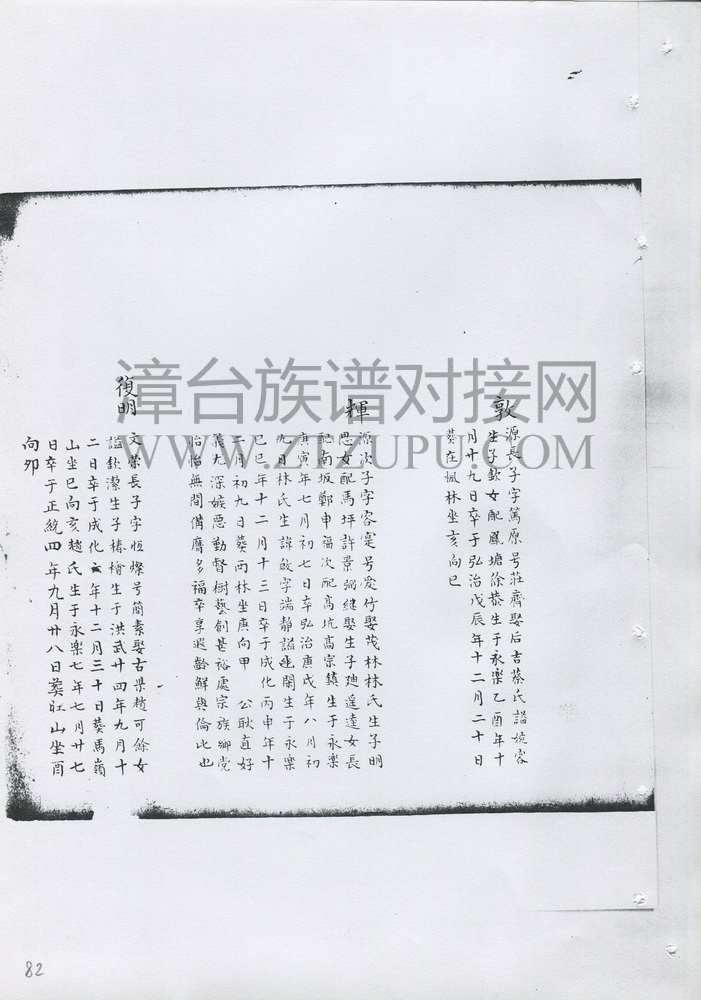 敦
源長子字篤原号莊齋娶后吉蔡氏諡婉容
生子欽女配鳳塘徐恭生于永樂乙酉年十
月廿九日卒于弘治戊辰年十二月二十日
葬在楓林坐亥向巳
輝
源次子字容寔号愛竹娶茂林林氏生子明
思女配馬坪許景弼継娶生子廸遥達女長
配南坂鄭申福次配高坑高宗鎮生于永樂
庚寅年七月初七日卒弘治庚戌年八月初
九日林氏生諱敏字端靜謚純閑生于永樂
己巳年十二月十三日卒于成化丙申年十
二月初九日葬西林坐庚向甲 公耿直好
義尤深嫉悪勤督樹藝創甚裕處宗族鄉党
怡怡無間備膺多福卒享遐齡鮮與倫比也
復明
文榮長子字恒燦号簡素娶古県趙可餘女
謚欽潔生子椿檜生于洪武廿四年九月十
二日卒于成化六年十二月三十日葬馬嶺
山坐巳向亥趙氏生于永樂七年七月廿七
日卒于正統四年九月廿八日葬旺山坐酉
向卯
漳台族谱对接网
WWW.ZTZUPU.COM
82